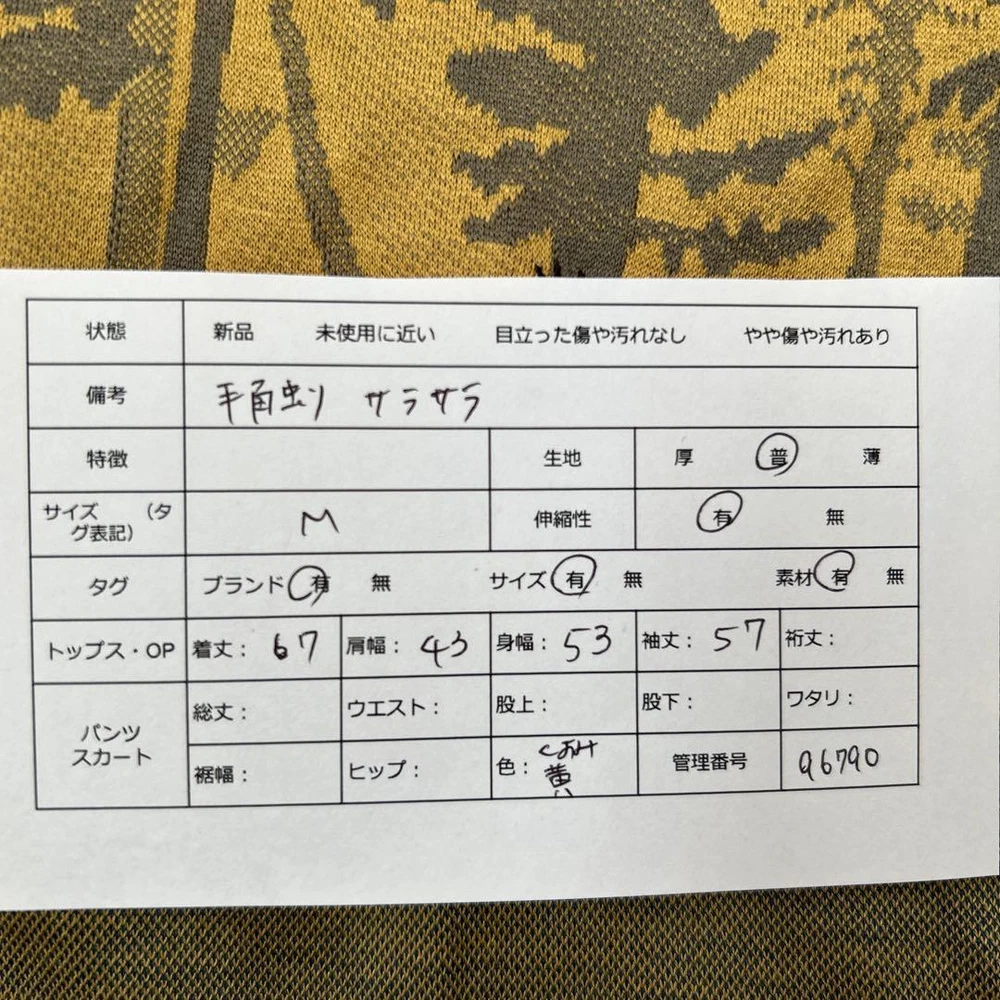 状態 新品 未使用に近い 目立った傷や汚れなし やや傷や汚れあり
備考 手触り サラサラ
特徴 生地 厚 普 薄
サイズ （タ
グ表記） M 伸縮性 有 無
タグ ブランド 有 無 サイズ 有 無 素材 有 無
トップス・OP 着丈： 67 肩幅： 43 身幅： 53 袖丈： 57 裄丈：
パンツ
スカート
総丈： ウエスト： 股上： 股下： ワタリ：
裾幅： ヒップ： 色： 黄 管理番号 96790